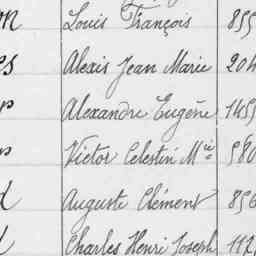 Louis François 855
Alexis Jean Marie 204
Alexandre Eugène 1455
Victor Celestin Mie 580
Auguste Clément 856
Charles Henri Joseph 117